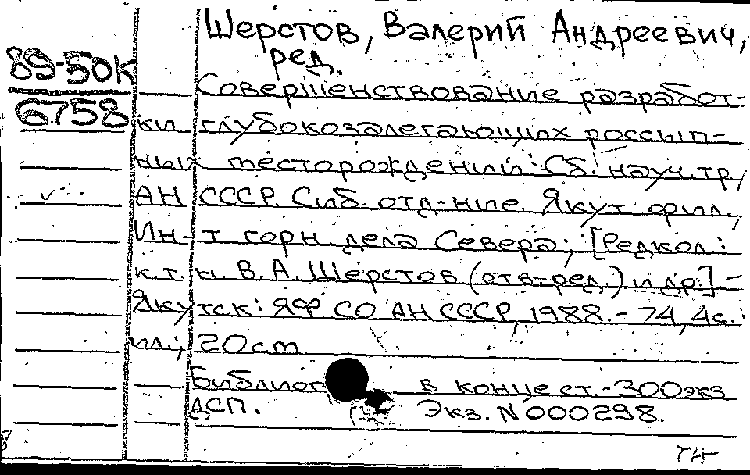 Шерстов, Валерий Андреевич,
ред.
89-50К
6758
Совершенствование разработ-
ки глубокозалегающих россып-
ных месторождений: Сб. науч. тр./
АН СССР. Сиб. отд-ние. Якут. фил.,
Ин-т горн. дела Севера; [Редкол.:
к.т.н. В.А. Шерстов (отв. ред.) и др.] -
Якутск: ЯФ СО АН СССР, 1988. - 74, 4с.:
ил.; 20см
Библиог в конце ст. - 300 экз.
ДСП. Экз. N 000298.